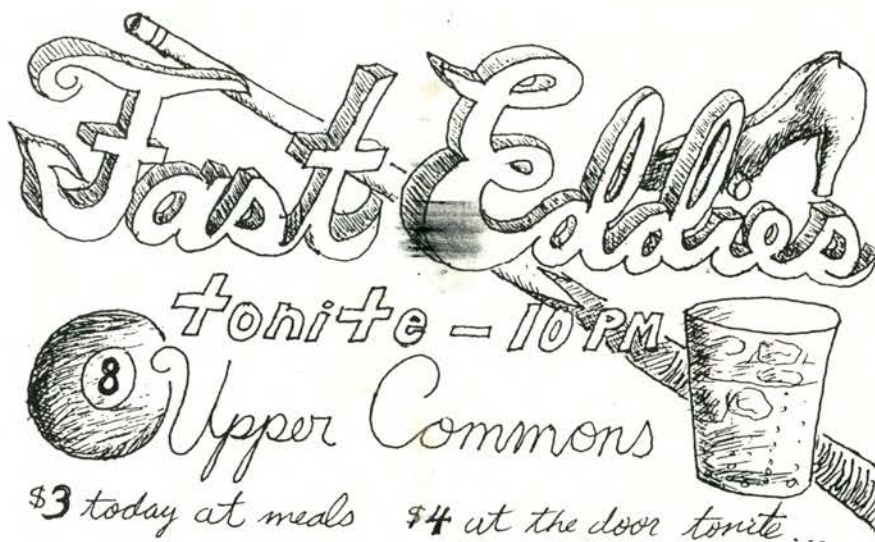 Fast Eddies
tonite - 10 PM
8
Upper Commons
$3 today at meals $4 at the door tonite...